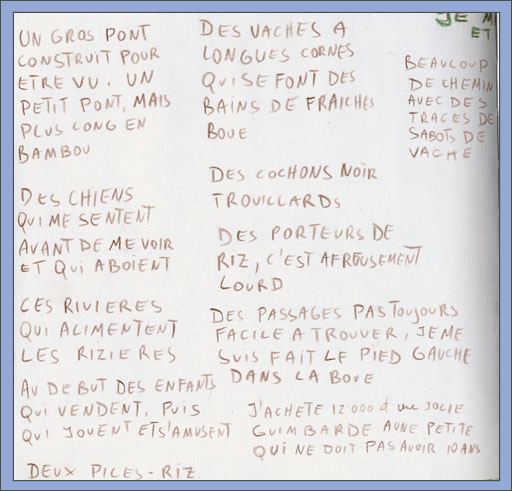 UN GROS PONT
CONSTRUIT POUR
ETRE VU. UN
PETIT PONT, MAIS
PLUS LONG EN
BAMBOU
DES CHIENS
QUI ME SENTENT
AVANT DE ME VOIR
ET QUI ABOIENT
CES RIVIERES
QUI ALIMENTENT
LES RIZIERES
AU DEBUT DES ENFANTS
QUI VENDENT, PUIS
QUI JOUENT ET S'AMUSENT
DEUX PICES-RIZ
DES VACHES A
LONGUES CORNES
QUI SE FONT DES
BAINS DE FRAICHES
BOUE
DES COCHONS NOIR
TROUILLARDS
DES PORTEURS DE
RIZ, C'EST AFREUSEMENT
LOURD
DES PASSAGES PAS TOUJOURS
FACILE A TROUVER, JE ME
SUIS FAIT LE PIED GAUCHE
DANS LA BOUE
J'ACHETE 12 000 đ une JOLIE
GUIMBARDE A UNE PETITE
QUI NE DOIT PAS AVOIR 10 ANS
JE M
ET
BEAUCOUP
DE CHEMIN
AVEC DES
TRACES DE
SABOTS DE
VACHE